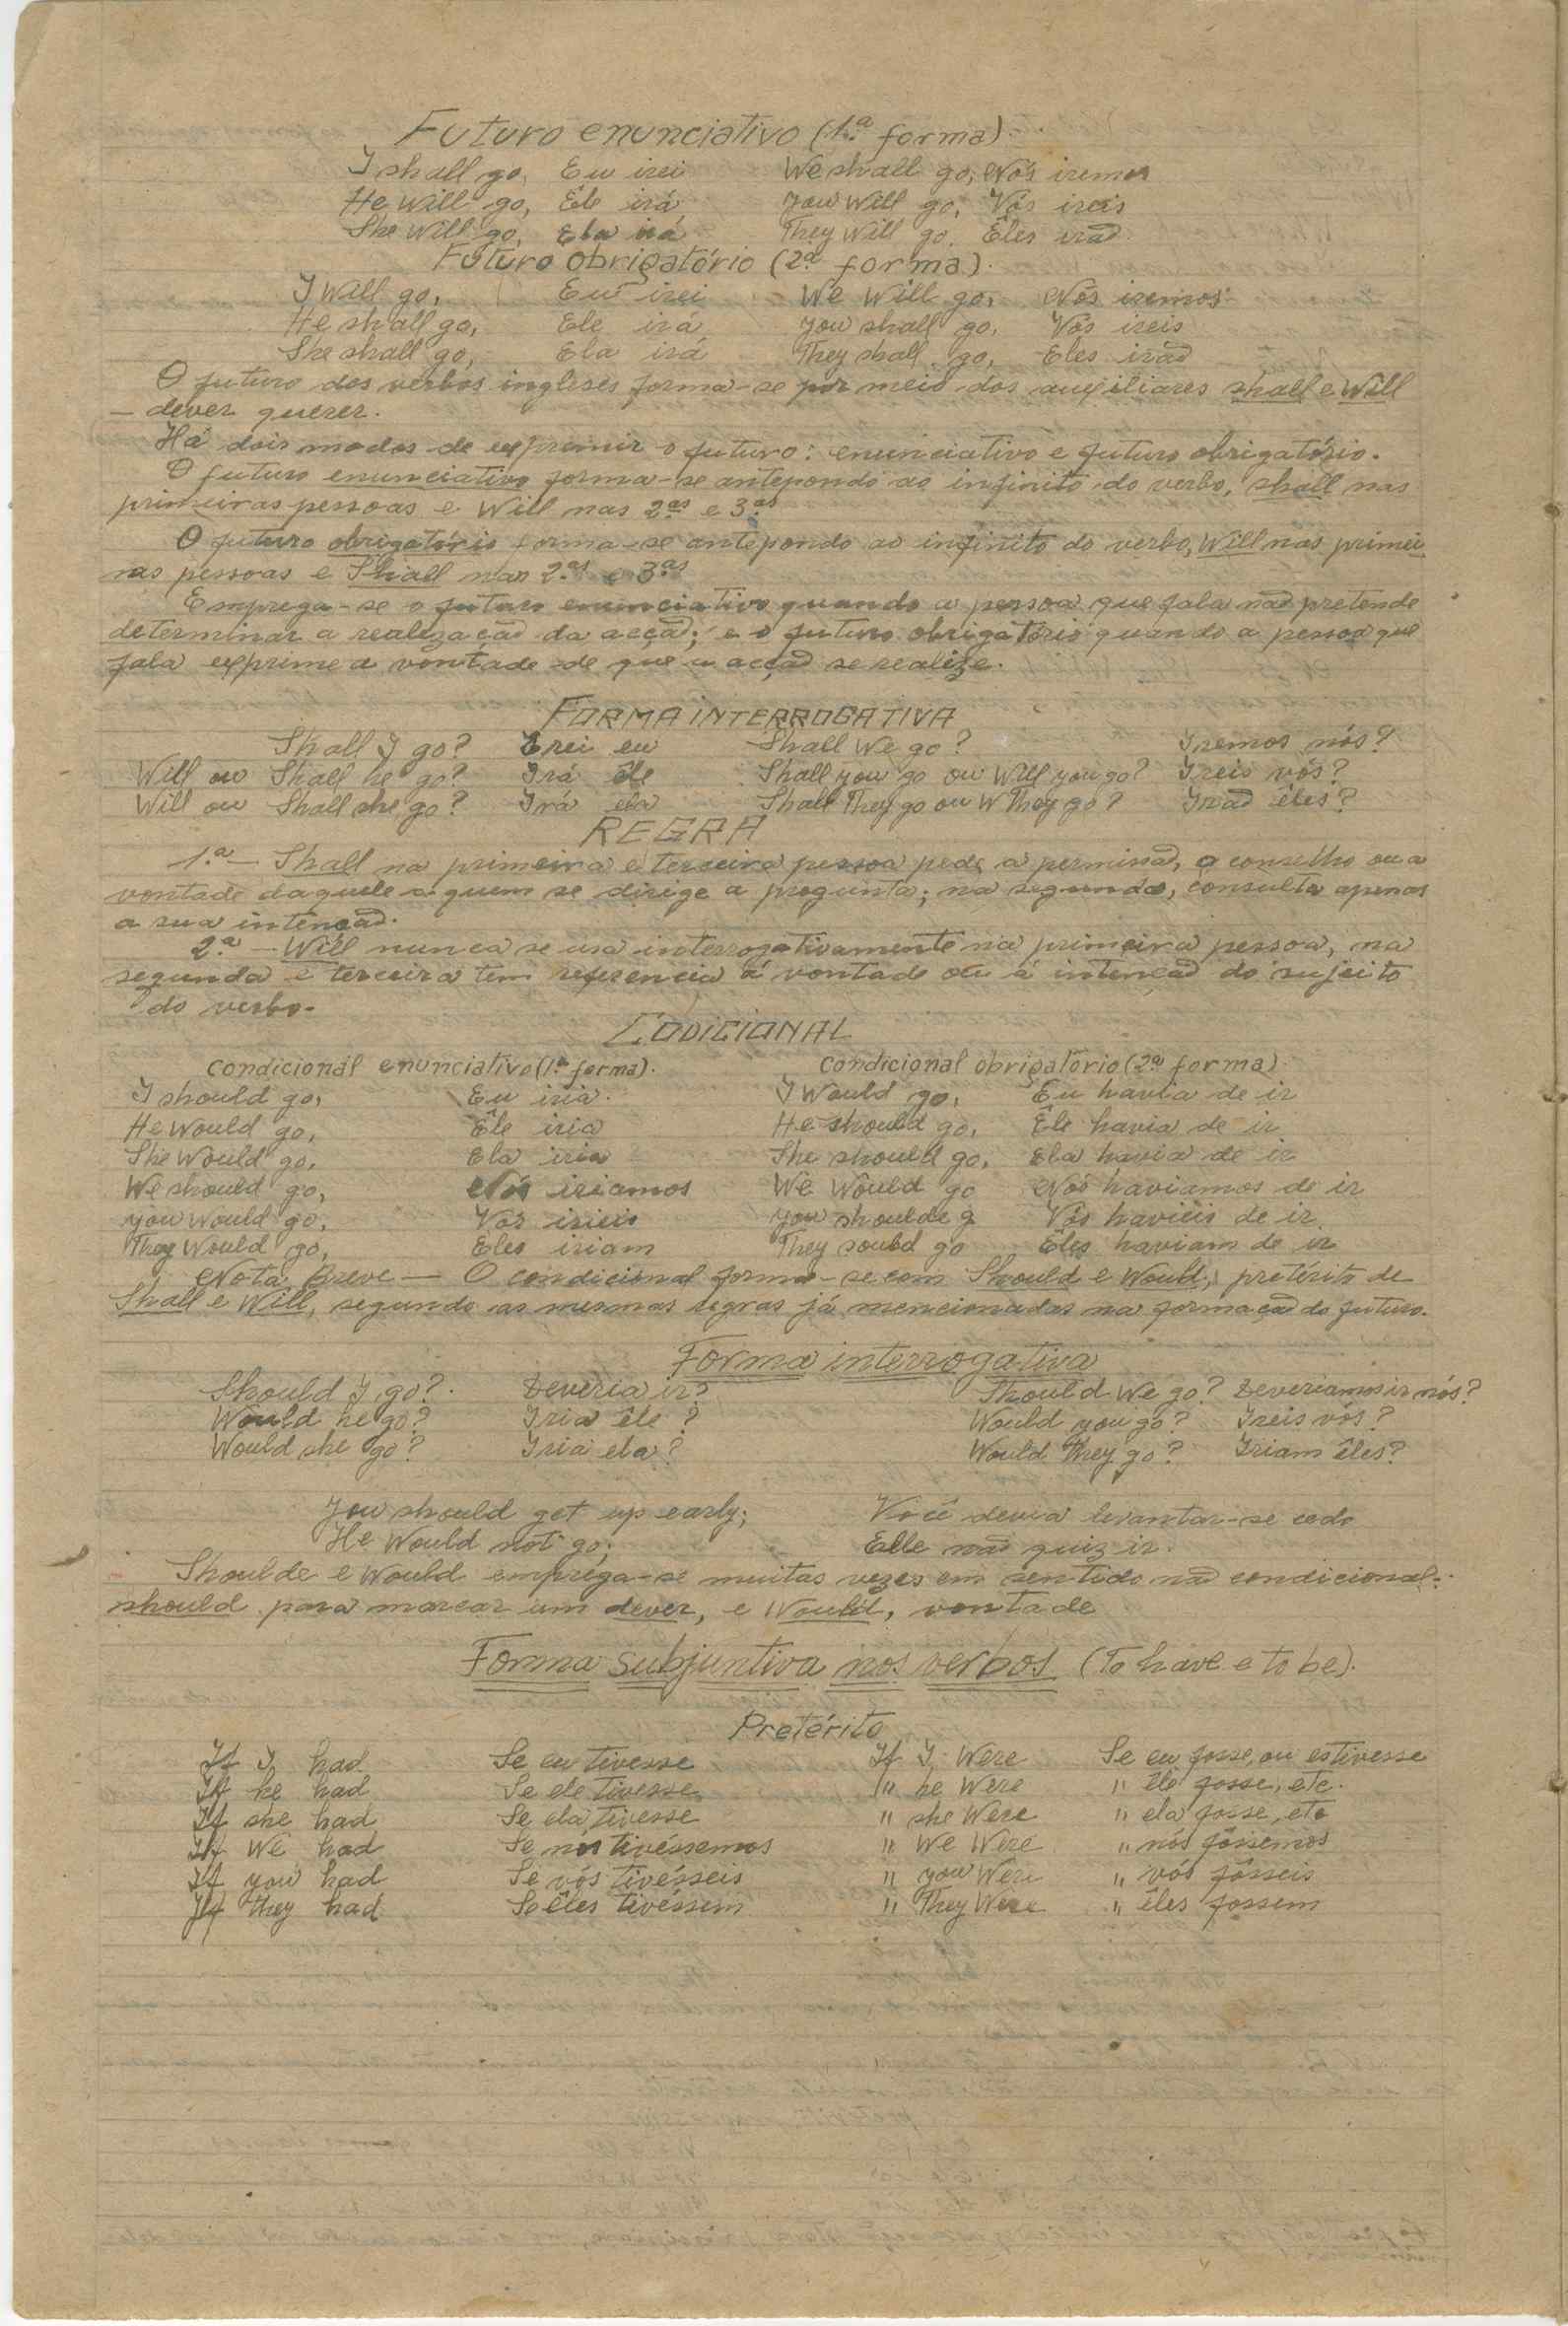 Futuro enunciativo (1.ª forma).
I shall go, Eu irei We shall go, Nós iremos
He Will go, Êle irá You Will go, Vós ireis
She Will go, Ela irá They Will go, Êles irão
Futuro obrigatório (2.ª forma).
I Will go, Eu irei We Will go, Nós iremos
He shall go, Ele irá You shall go, Vós ireis
She shall go, Ela irá They shall go, Eles irão
O futuro dos verbos ingleses forma-se por meio dos auxiliares shall e Will
- dever querer.
Há dois modos de exprimir o futuro: enunciativo e futuro obrigatório.
O futuro enunciativo forma-se antepondo ao infinito do verbo, shall nas
primeiras pessoas e Will nas 2.as e 3.as
O futuro obrigatório forma-se antepondo ao infinito do verbo, Will nas primei
ras pessoas e Shall nas 2.as e 3.as
Emprega-se o futuro enunciativo quando a pessoa que fala não pretende
determinar a realização da acção; e o futuro obrigatório quando a pessoa que
fala exprime a vontade de que a acção se realize.
FORMA INTERROGATIVA
Shall I go? Irei eu Shall We go? Iremos nós?
Will ou Shall he go? Irá êle Shall you go ou Will you go? Ireis vós?
Will ou Shall she go? Irá ela Shall They go ou W They go? Irão êles?
REGRA
1.ª - Shall na primeira e terceira pessoa pede a permisão, o conselho ou a
vontade daquele a quem se dirige a pregunta; na segunda, consulta apenas
a sua intenção.
2.ª - Will nunca se usa interrogativamente na primeira pessoa, na
segunda e terceira tem referencia á vontade ou á intenção do sujeito
do verbo.
CODICIONAL
Condicional enunciativo (1.ª forma). Condicional obrigatório (2.ª forma).
I should go, Eu iria. I Would go, Eu havia de ir
He Would go, Êle iria He should go, Êle havia de ir
She Would go, Ela iria She should go, Ela havia de ir
We should go, Nós iriamos We Would go Nós haviamos de ir
you Would go, Vós irieis you shoulde g Vós havieis de ir
They Would go, Eles iriam They sould go Êles haviam de ir
Nota Breve - O condicional forma-se com Should e Would, pretérito de
Shall e Will, segundo as mesmas regras já mencionadas na formação do futuro.
Forma interrogativa
Should I go? Deveria ir? Should We go? Deveriamos ir nós?
Would he go? Iria êle? Would you go? Ireis vós?
Would she go? Iria ela? Would They go? Iriam êles?
You should get up early; Você devia levantar-se cedo
He Would not go; Elle não quiz ir.
Shoulde e Would emprega-se muitas vezes em sentido não condicional:
should para marcar um dever, e Would, vontade
Forma subjuntiva nos verbos (To have e to be).
Pretérito
If I had Se eu tivesse If I Were Se eu fosse, ou estivesse
If he had Se ele tivesse " he Were " êle fosse, etc.
If she had Se ela tivesse " she Were " ela fosse, etc
If We had Se nós tivéssemos " We Were " nós fôssemos
If you had Se vós tivésseis " you Were " vós fôsseis
If they had Se êles tivéssem " They Were " êles fossem